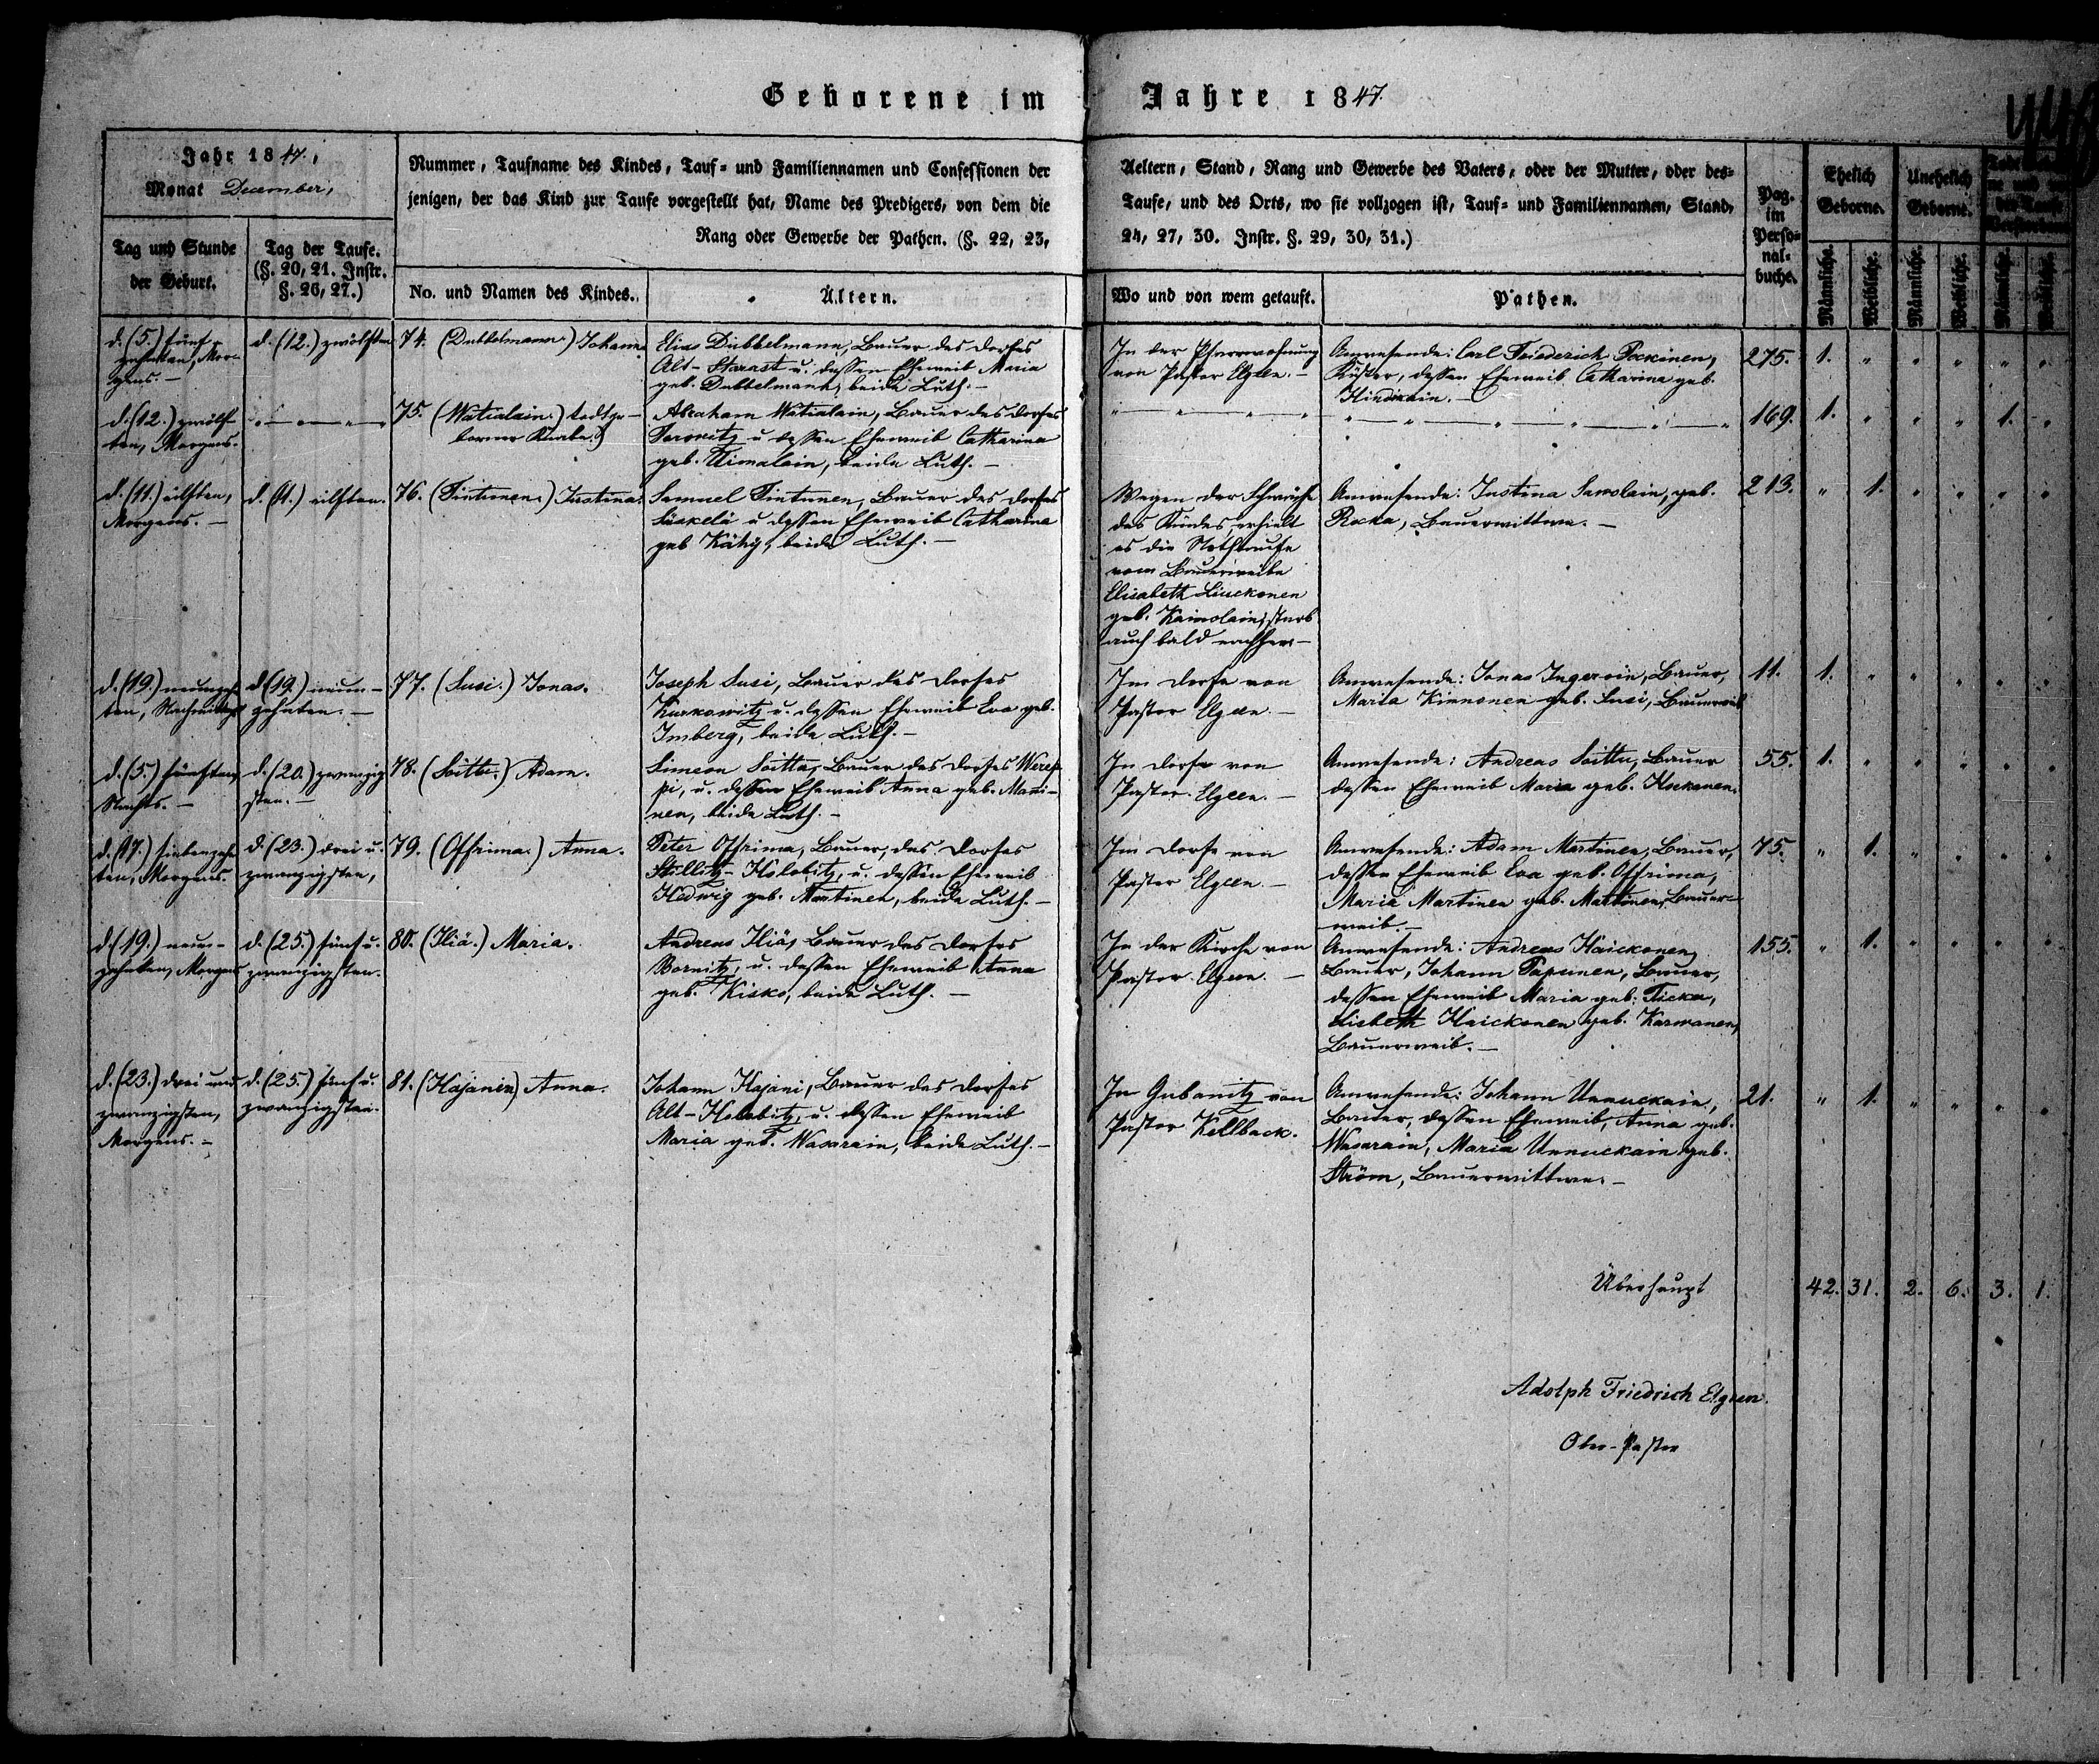 Geborene im Jahre 1847.
Jahr 1847.
Monat December,
Nummer, Taufname des Kindes, Tauf- und Familiennamen und Confessionen der
jenigen, der das Kind zur Taufe vorgestellt hat, Name des Predigers, von dem die
Rang oder Gewerbe der Pathen. (§. 22, 23,
Aeltern, Stand, Rang und Gewerbe des Vaters, oder der Mutter, oder des-
Taufe, und des Orts, wo sie vollzogen ist, Tauf- und Familiennamen, Stand,
24, 27, 30. Instr. §. 29, 30, 31.)
Pag.
im
Perso-
nal-
buche.
Ehelich
Geborne.
Unehelich
Geborne.
Männliche.
Weibliche.
Männliche.
Weibliche.
Männliche.
Weibliche.
Tag und Stunde
der Geburt.
Tag der Taufe.
(§. 20, 21. Instr.
§. 26, 27.)
No. und Namen des Kindes.
Ältern.
Wo und von wem getauft.
Pathen.
d. (5.) fünf-
gens. –
d. (12.) zwölften
74. (Dubbelmann.) Johann
Elias Dubbelmann, Bauer des Dorfes
Alt-Skarast u. dessen Eheweib Maria
geb. Dubbelmann, beide Luth. –
In der Pfarrwohnung
von Pastor Elgren. –
Anwesende: Carl Friederich Pockinen,
Küster, dessen Eheweib Catharina geb.
Hindikain. –
275. 1. " " " " "
d. (12.) zwölf-
ten, Morgens.
" — " — "
75. (Watialain.) todtge-
borner Knabe.)
Abraham Watialain, Bauer des Dorfes
Sorowitz u dessen Eheweib Catharina
geb. Uimalain, beide Luth. –
" — " — " — "
" — " — " — " — " — "
169. 1. " " " 1. "
d. (11.) eilften,
Morgens. –
d. (11.) eilften.
76. (Tintunen.) Justina.
Samuel Tintunen, Bauer des Dorfes
Säskelä u dessen Eheweib Catharina
geb Kähy, beide Luth. –
Wegen der Schwäche
des Kindes erhielt
es die Nothtaufe
vom Bauerweibe
Elisabeth Liuckonen
geb. Kaimolain, starb
auch bald nachher –
Anwesende: Justina Sawolain, geb.
Rocka, Bauerwittwe. –
213. " 1. " " " "
d. (19.) neunzehn
ten, Nachmittags
d. (19.) neun-
zehnten. –
77. (Susi.) Jonas.
Joseph Susi, Bauer des Dorfes
Kurkowitz u. dessen Eheweib Eva geb.
Imberg, beide Luth. –
Im Dorfe von
Pastor Elgren. –
Anwesende: Jonas Ingeroin, Bauer,
Maria Kinnonen geb. Susi, Bauerweib
11. 1. " " " " "
d. (5.) fünften,
Nachts. –
d. (20.) zwanzig
sten. –
78. (Soittu.) Adam.
Simeon Soittu, Bauer des Dorfes Werep-
pi, u. dessen Eheweib Anna geb. Mani-
nen, beide Luth. –
Im Dorfe von
Pastor Elgren. –
Anwesende: Andreas Soittu, Bauer
dessen Eheweib Maria geb. Huckonen.
55. 1. " " " " "
d. (17.) siebenzehn
ten, Morgens.
d. (23.) drei u.
zwanzigsten,
79. (Offrima.) Anna.
Peter Offrima, Bauer, des Dorfes
Skillitz-Holobitz, u. dessen Eheweib
Hedwig geb. Martinen, beide Luth. –
Im Dorfe von
Pastor Elgren. –
Anwesende: Adam Martinen, Bauer,
dessen Eheweib Eva geb. Offrima,
Maria Martinen geb. Mattinen, Bauer-
weib. –
75. " 1. " " " "
d. (19.) neun-
zehnten, Morgens
d. (25.) fünf u.
zwanzigsten.
80. (Iliä.) Maria.
Andreas Iliä, Bauer des Dorfes
Bornitz, u. dessen Eheweib Anna
geb. Kisko, beide Luth. –
In der Kirche von
Pastor Elgren. –
Anwesende: Andreas Haickonen,
Bauer, Johann Papunen, Bauer,
dessen Eheweib Maria geb: Ticka,
Lisbeth Haickonen geb. Karwanen,
Bauerweib. –
155. " 1. " " " "
d. (23.) drei und
zwanzigsten,
Morgens. –
d. (25.) fünf u.
zwanzigsten.
81. (Kajanin) Anna.
Johann Kajani, Bauer des Dorfes
Alt-Holobitz, u. dessen Eheweib
Maria geb. Wasarain, beide Luth. –
In Gubanitz von
Pastor Kellback.
Anwesende: Johann Unnuckain,
Bauer, dessen Eheweib, Anna geb.
Wasarain, Maria Unnuckain geb.
Ström, Bauerwittwe. –
21. " 1. " " " "
Überhaupt 42. 31. 2. 6. 3. 1.
Adolph Friedrich Elgren.
Ober-Pastor